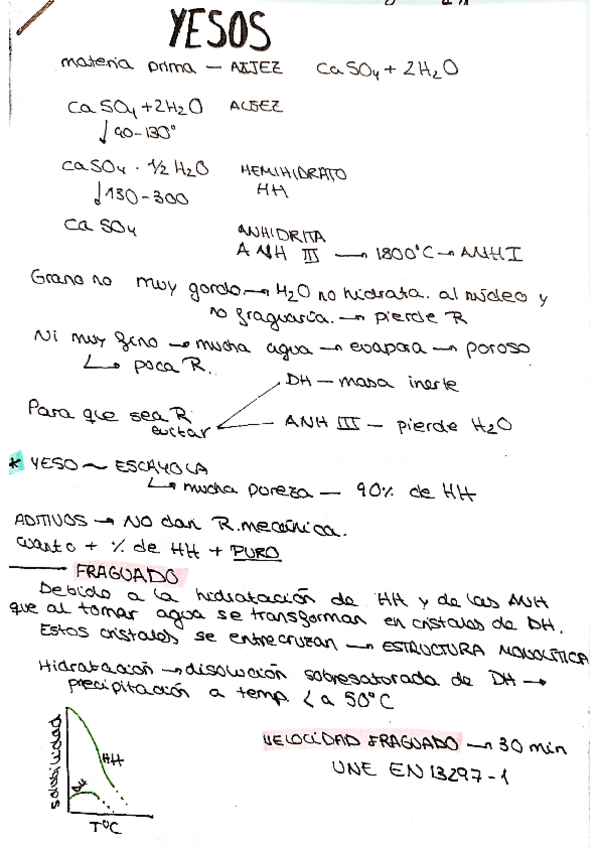 YESOS
materia prima — ALJEZ CaSO4 + 2H2O
CaSO4 + 2H2O ALJEZ
↓ 90-130°
CaSO4 · 1/2 H2O HEMIHIDRATO
HH
↓ 130-300
CaSO4 ANHIDRITA
ANH III → 1800°C → ANH I
Grano no muy gordo. → H2O no hidrata. al núcleo y
no fraguaría. → pierde R
Ni muy fino → mucha agua → evapora → poroso
↳ poca R.
DH — masa inerte
Para que sea R
evitar
ANH III — pierde H2O
* YESO ~ ESCAYOLA
↳ mucha pureza — 90% de HH
ADITIVOS → NO dan R. mecánica.
cuanto + % de HH + PURO
FRAGUADO
Debido a la hidratación de HH y de las ANH
que al tomar agua se transforman en cristales de DH.
Estos cristales se entrecruzan → ESTRUCTURA MONOLÍTICA
Hidratación → disolución sobresaturada de DH →
precipitación a temp. < a 50°C
solubilidad
HH
DH
T°C
VELOCIDAD FRAGUADO → 30 min
UNE EN 13297-1